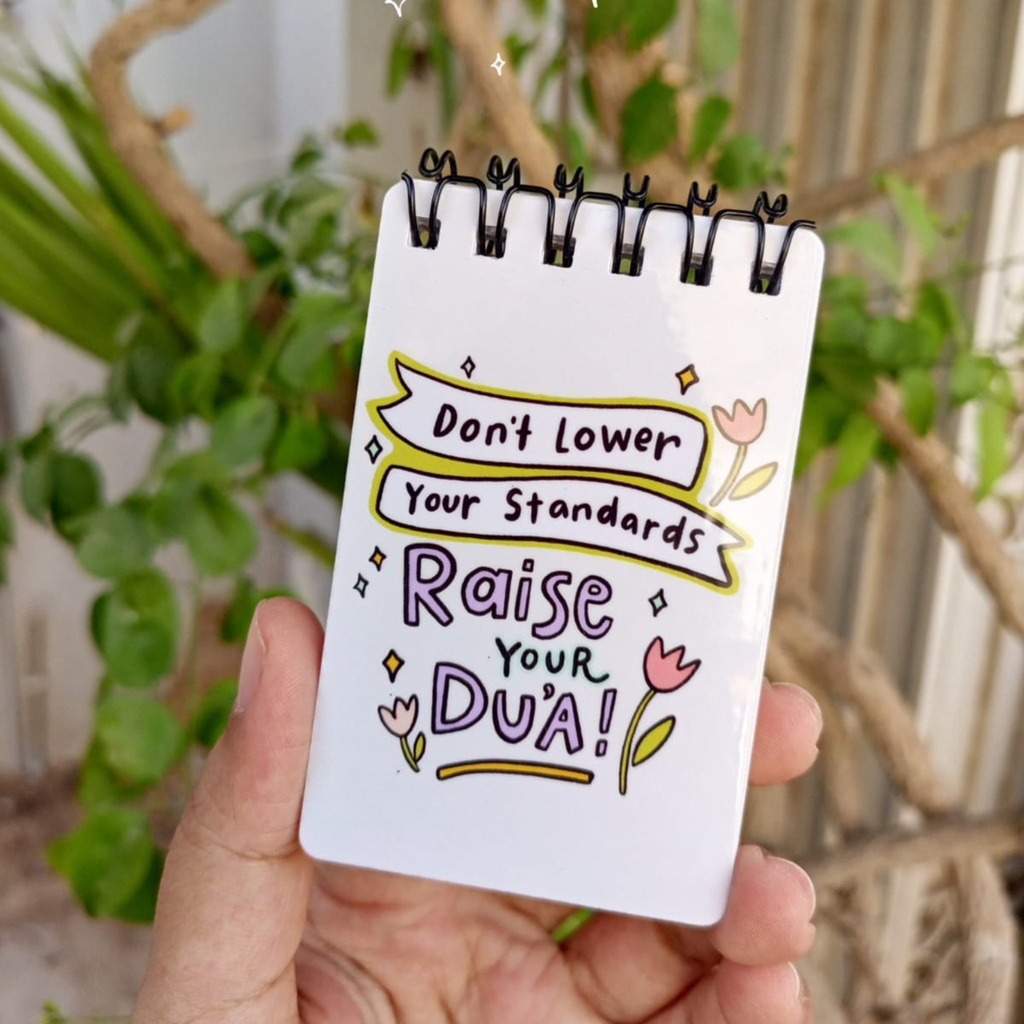 Don't Lower
Your Standards
Raise
YOUR
DU'A!